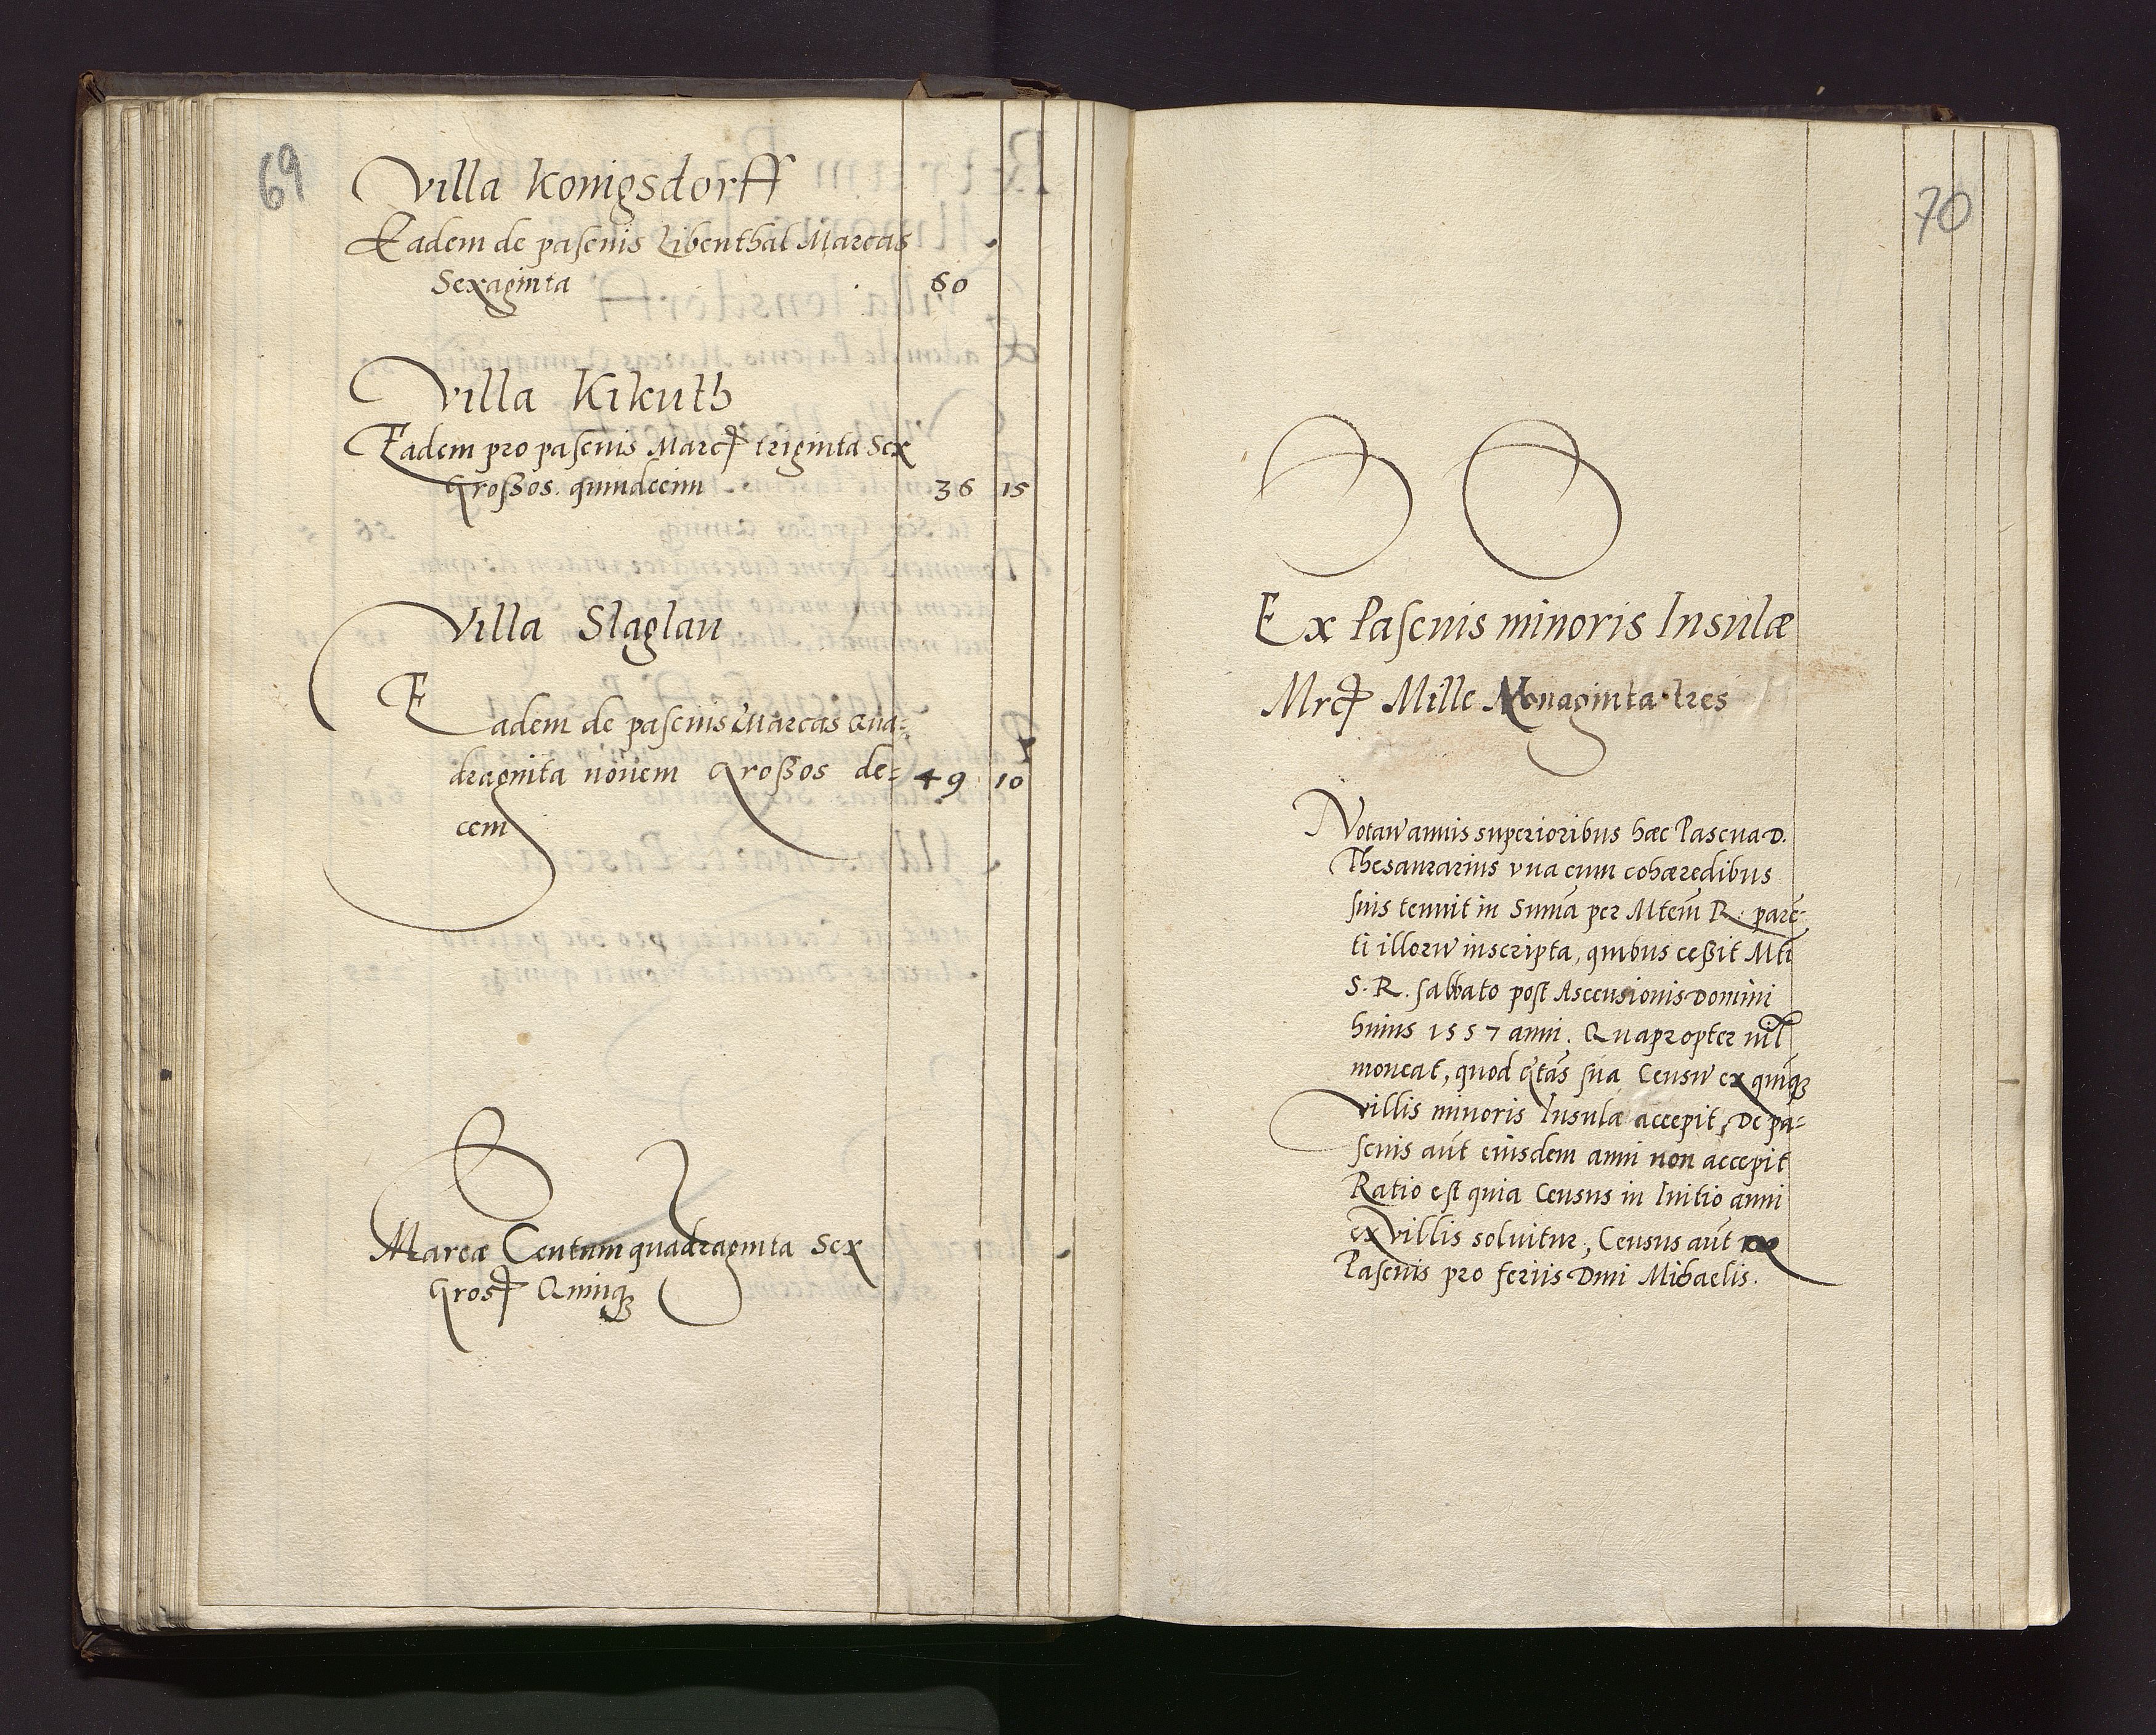 69
Villa Konigsdorff
Eadem de pascuis Libenthal Marcas
Sexaginta 60
Villa Kikuth
Eadem pro pascuis Marcꝭ triginta Sex
Großos quindecim 36 15
Villa Slaglau
Eadem de pascuis Marcas Qua-
draginta novem Großos de- 49 10
cem
Marcæ Centum quadraginta Sex
Grosꝭ Quinqꝫ
70
Ex Pascuis minoris Insulæ
Mrcꝭ Mille Nonaginta tres
Notaw annis superioribus hæc Pascua D.
Thesaurarius vna cum cohæredibus
suis tenuit in Suma per Mtem R. pare-
ti illorw inscripta, quibus ceßit Mti
S. R. sabbato post Ascensionis Domini
huius 1557 anni. Quapropter nil
moveat, quod sua Censw ex quinqꝫ
villis minoris Insulæ accepit, De pa-
scuis aut eiusdem anni non accepit
Ratio est quia Census in Initio anni
ex villis solvitur, Census aut ex
Pascuis pro feriis Dmi Michaelis.